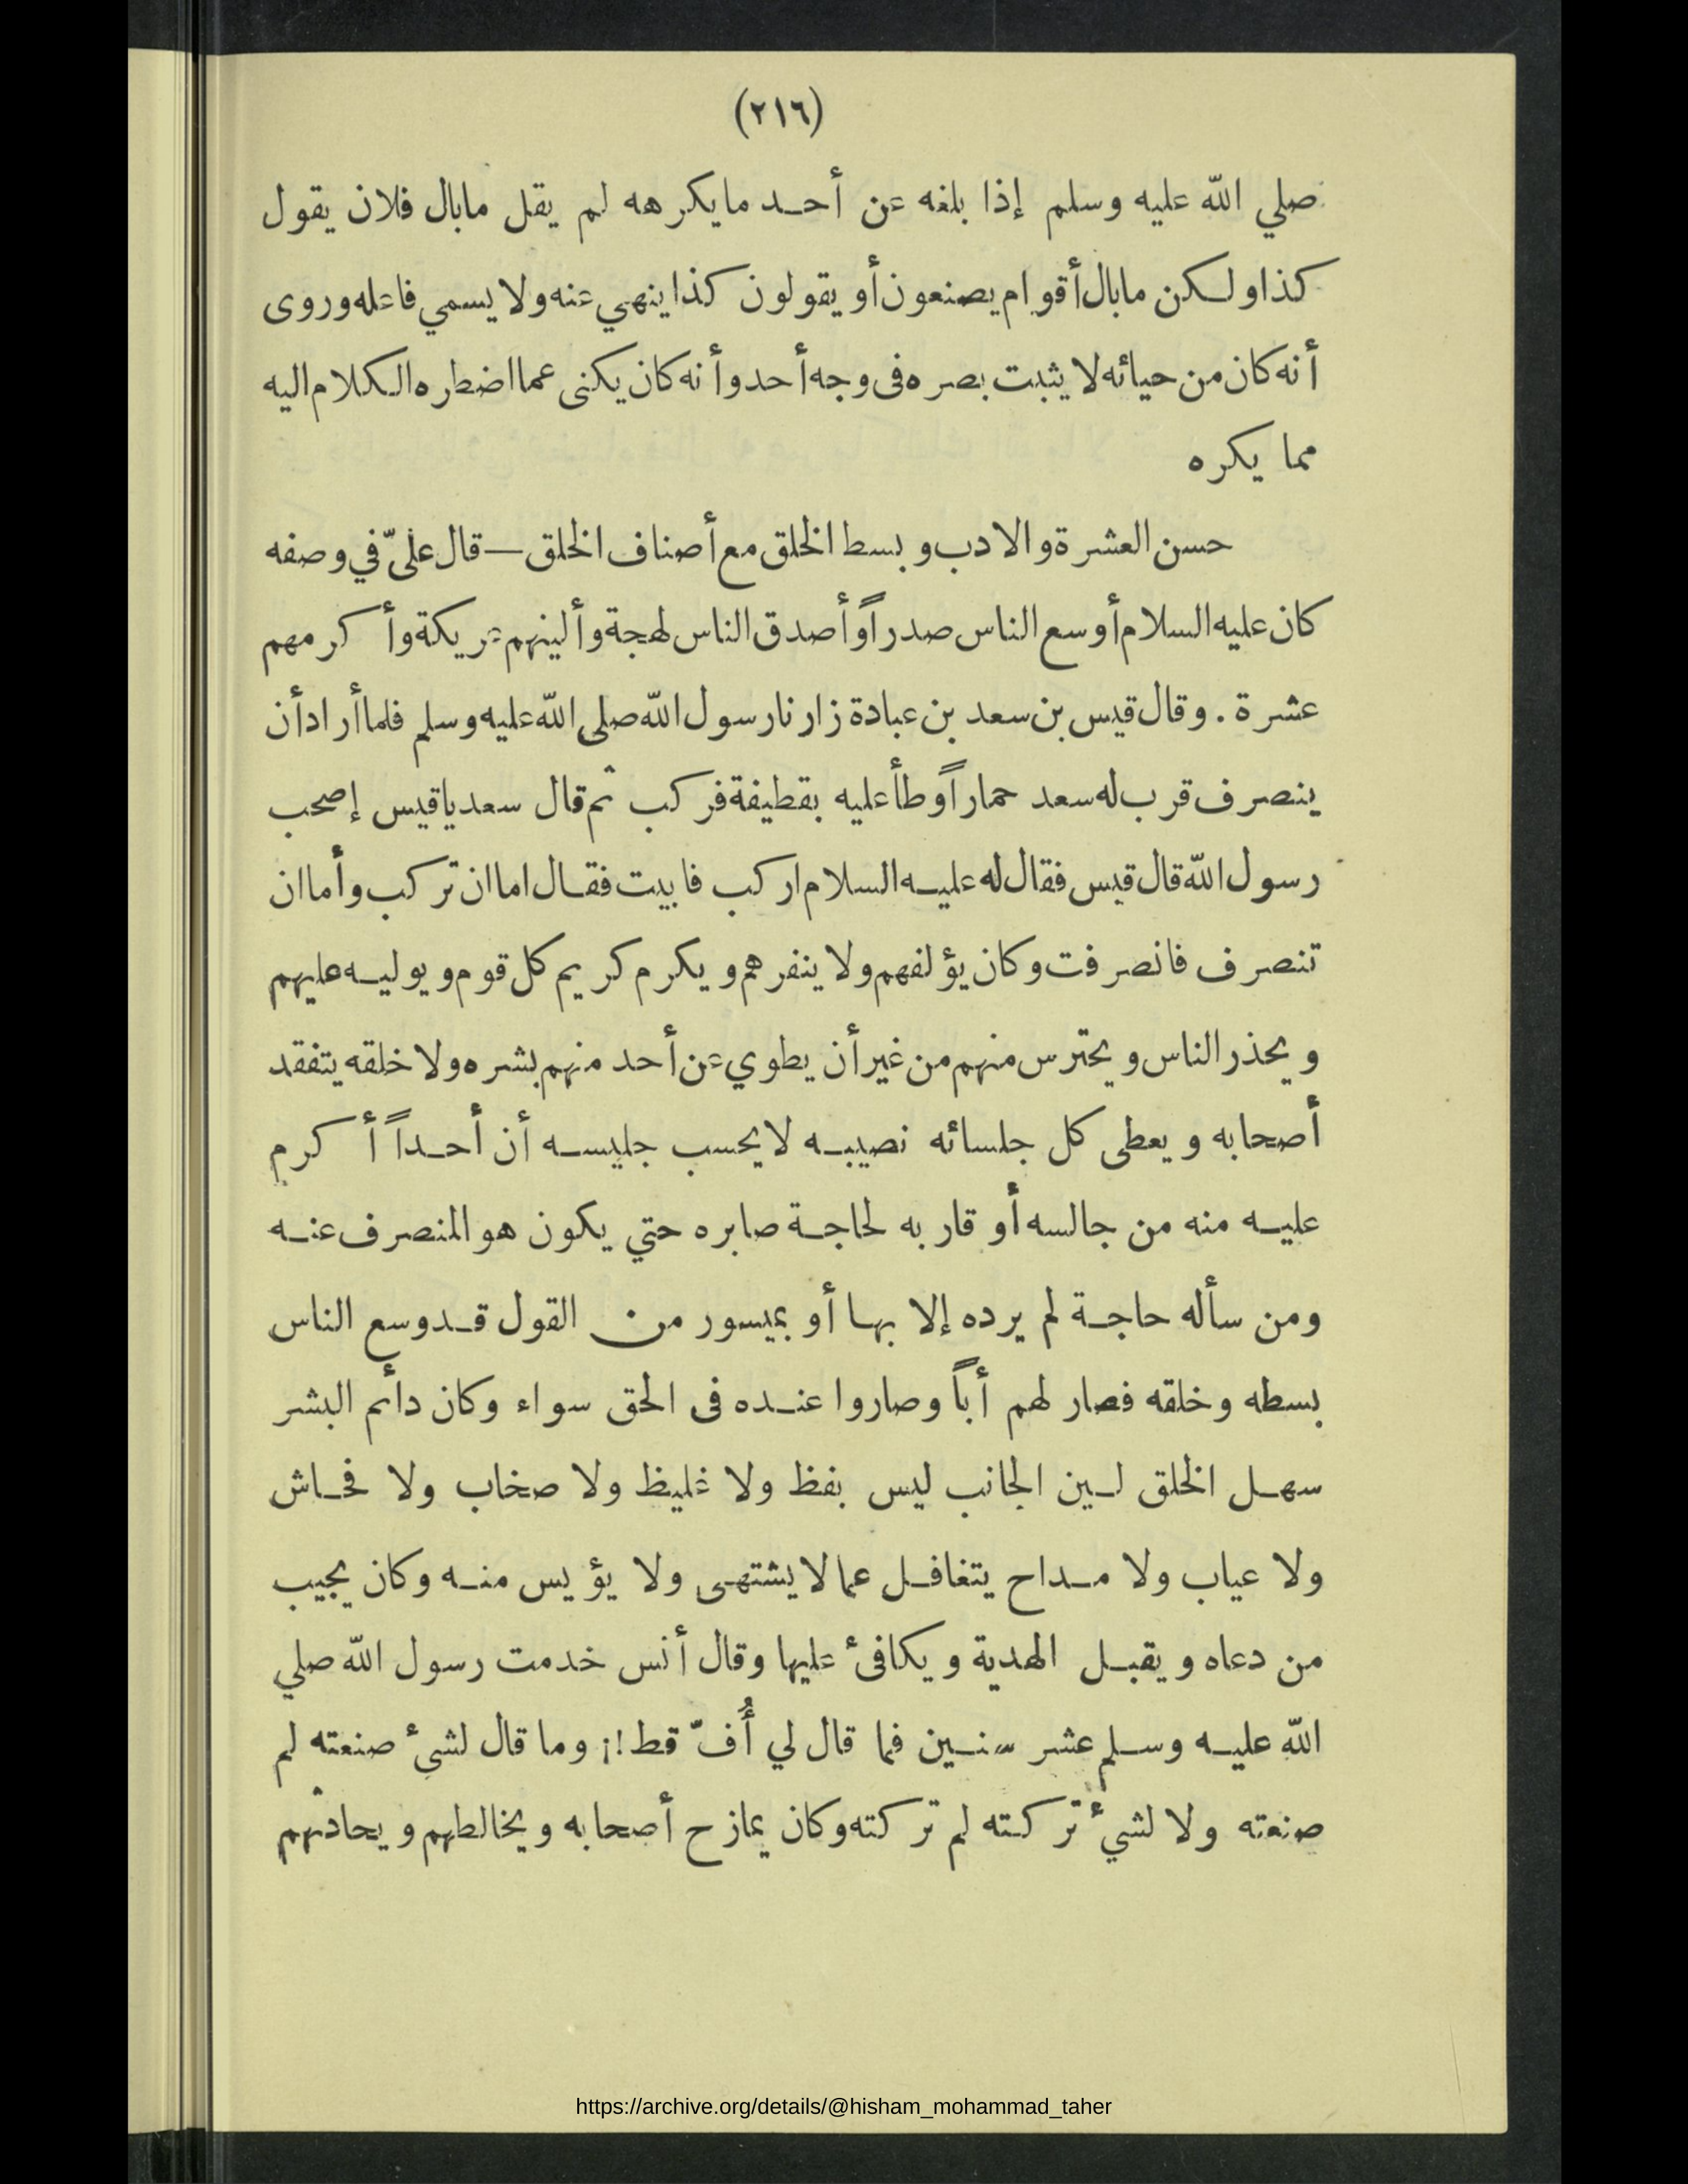 (٢١٦)
صلي الله عليه وسلم إذا بلغه عن أحد مايكرهه لم يقل مابال فلان يقول
كذا ولكن مابال أقوام يصنعون أو يقولون كذا ينهي عنه ولا يسمي فاعله وروى
أنه كان من حيائه لا يثبت بصره فى وجه أحد وأنه كان يكنى عما اضطره الكلام اليه
مما يكره
حسن العشرة والادب وبسط الخلق مع أصناف الخلق — قال علىّ في وصفه
كان عليه السلام أوسع الناس صدراً وأصدق الناس لهجة وألينهم عريكة وأكرمهم
عشرة . وقال قيس بن سعد بن عبادة زارنا رسول الله صلى الله عليه وسلم فلما أراد أن
ينصرف قرب له سعد حماراً وطأ عليه بقطيفة فركب ثم قال سعد ياقيس إصحب
رسول الله قال قيس فقال له عليه السلام اركب فابيت فقال اما ان تركب وأما ان
تنصرف فانصرفت وكان يؤلفهم ولا ينفرهم ويكرم كريم كل قوم ويوليه عليهم
ويحذر الناس ويحترس منهم من غير أن يطوي عن أحد منهم بشره ولا خلقه يتفقد
أصحابه ويعطى كل جلسائه نصيبه لايحسب جليسه أن أحداً أكرم
عليه منه من جالسه أو قاربه لحاجة صابره حتي يكون هو المنصرف عنه
ومن سأله حاجة لم يرده إلا بها أو بميسور من القول قد وسع الناس
بسطه وخلقه فصار لهم أباً وصاروا عنده فى الحق سواء وكان دأم البشر
سهل الخلق لين الجانب ليس بفظ ولا غليظ ولا صخاب ولا فحاش
ولا عياب ولا مداح يتغافل عما لا يشتهى ولا يؤيس منه وكان يجيب
من دعاه ويقبل الهدية ويكافئ عليها وقال أنس خدمت رسول الله صلي
الله عليه وسلم عشر سنين فما قال لي أُفّ قط!¡ وما قال لشئ صنعته لم
صنعته ولا لشئ تركته لم تركته وكان يمازح أصحابه ويخالطهم ويحادثهم
https://archive.org/details/@hisham_mohammad_taher